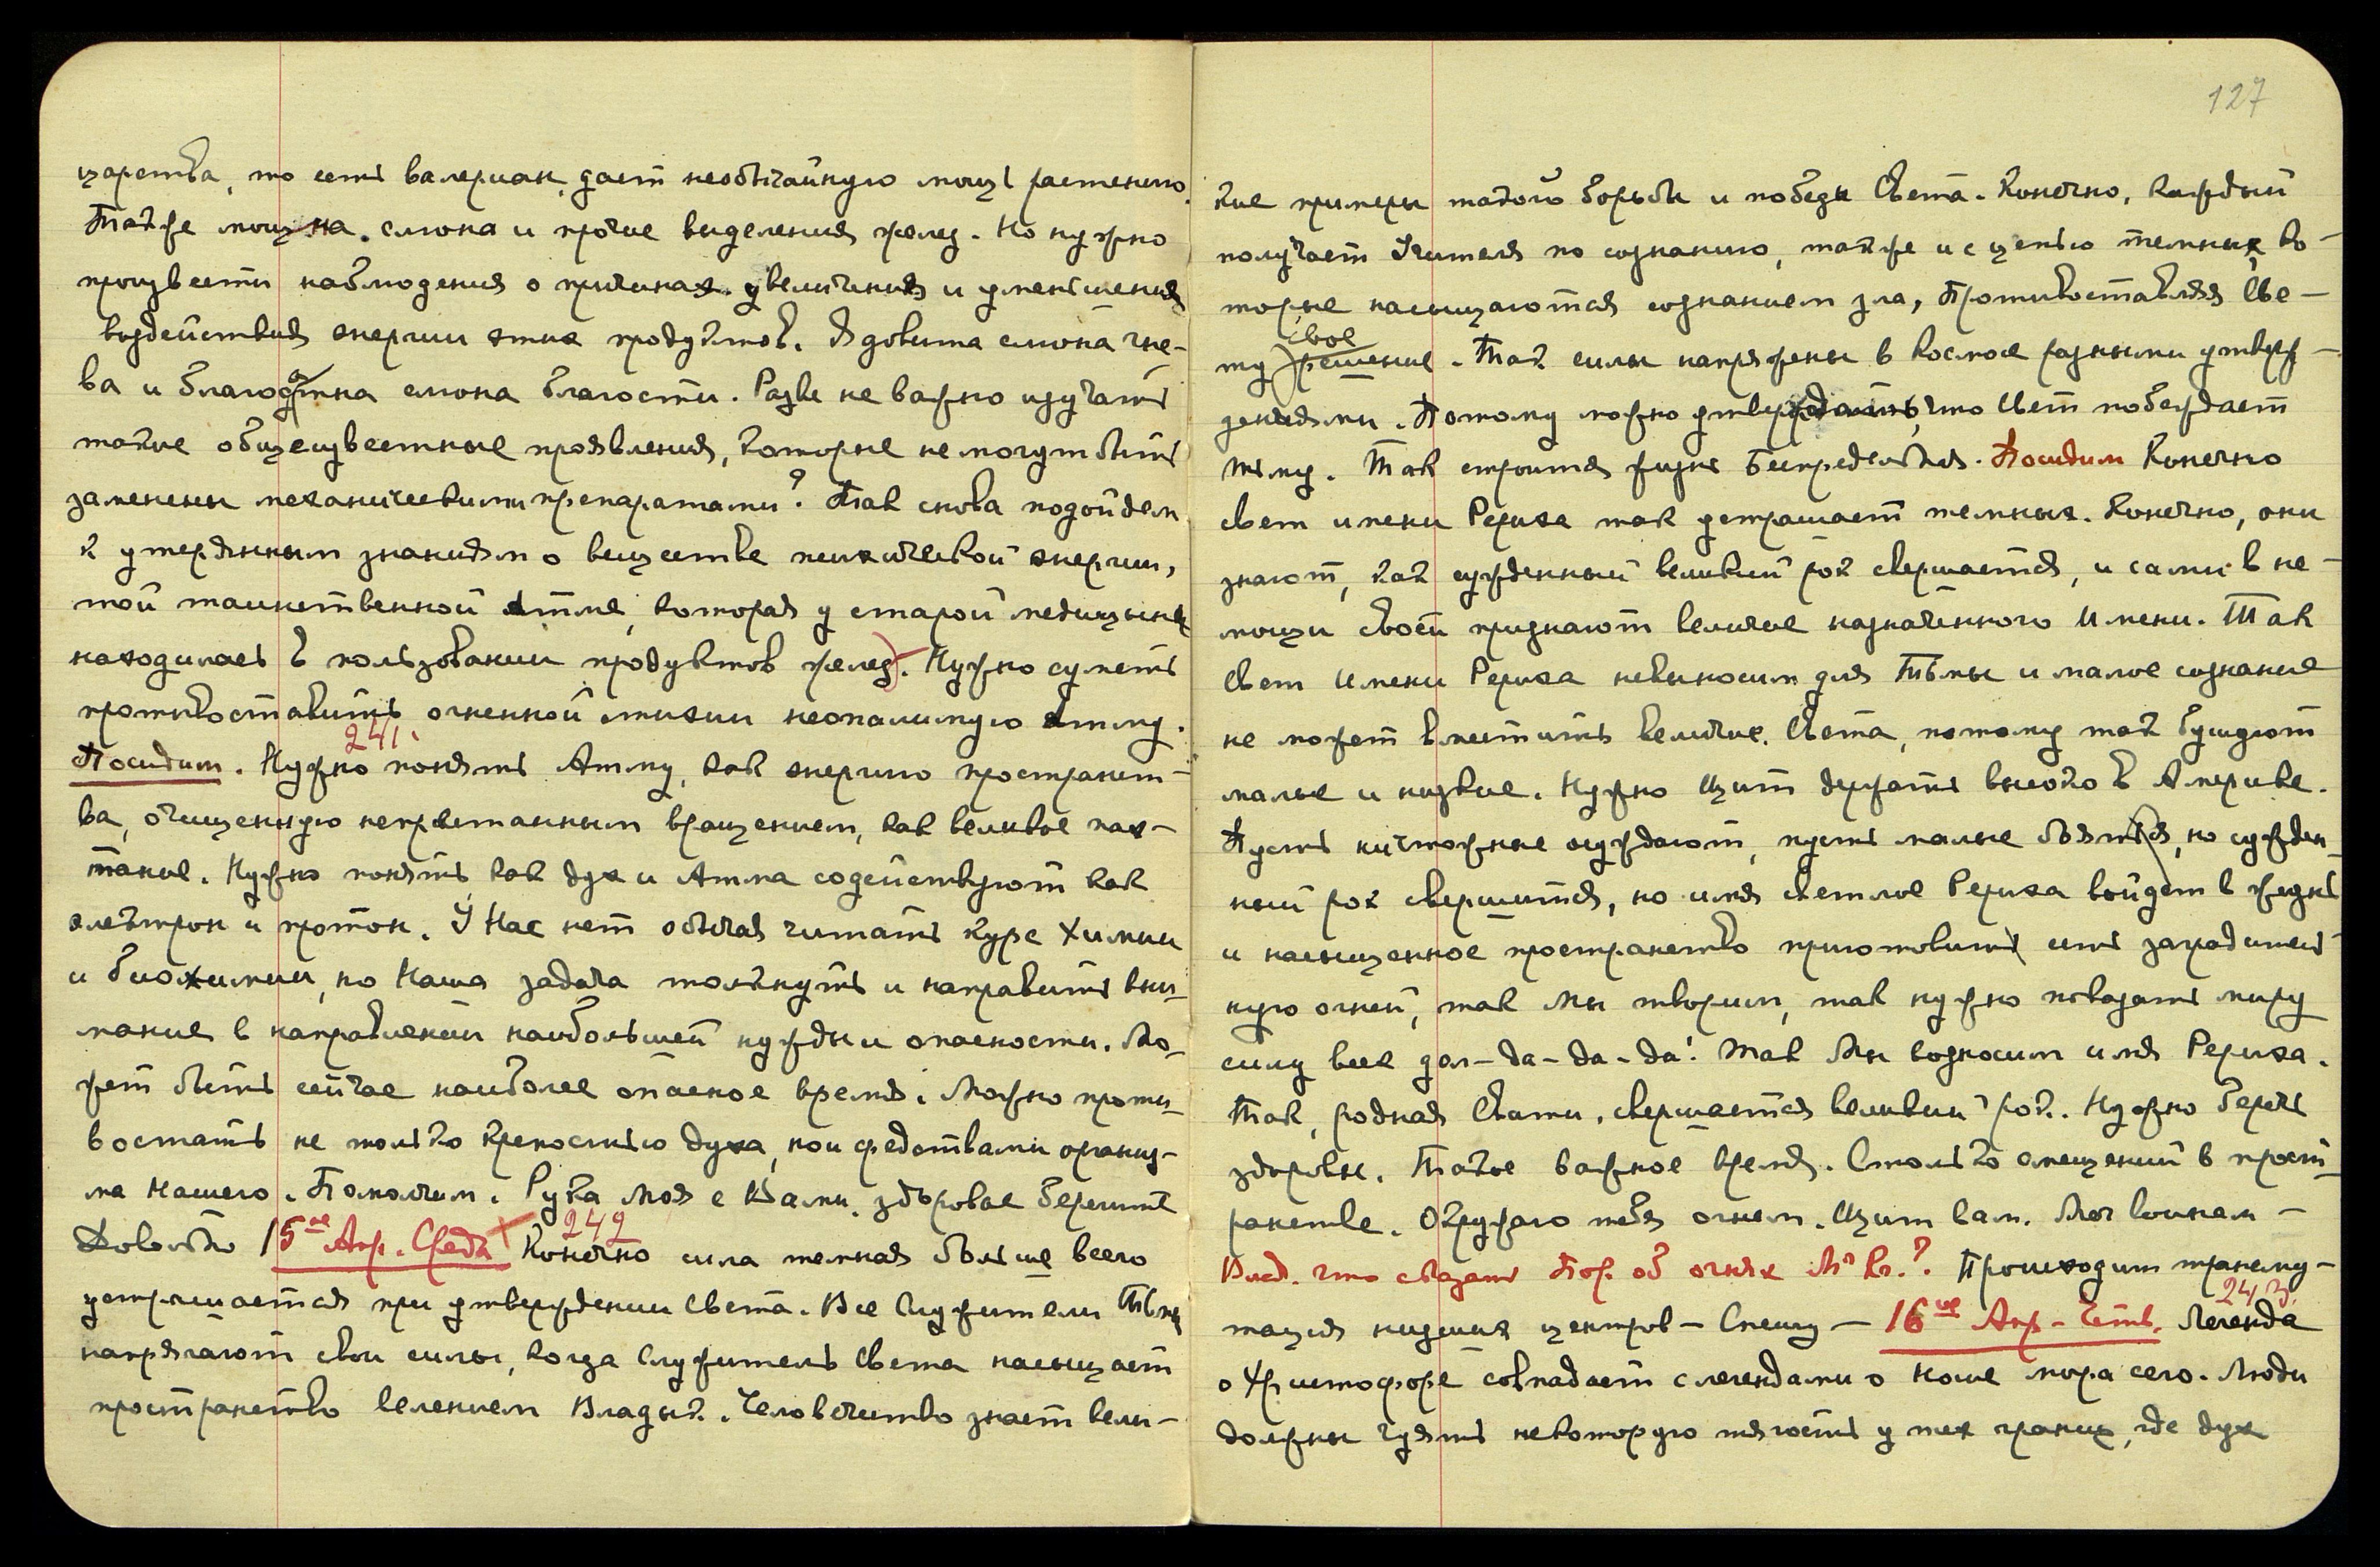 царства, то есть валериан, дает необычайную мощь растению.
Также мощна слюна и прочие выделения желез. Но нужно
произвести наблюдения о причинах увеличения и уменьшения
воздействия энергии этих продуктов. Ядовита слюна гне-
ва и благодатна слюна благости. Разве не важно изучать
такие общеизвестные проявления, которые не могут быть
заменены механическими препаратами? Так снова подойдем
к утерянным знаниям о веществе психической энергии,
той таинственной атме, которая у старой медицины
находилась в пользовании продуктов желез). Нужно суметь
противоставить огненной стихии неопалимую атму.
241.
Посидим. Нужно понять Атму, как энергию пространст-
ва, очищенную непрестанным вращением, как великое пах-
танье. Нужно понять, как дух и Атма содействуют как
электрон и протон. У Нас нет обычая читать курс химии
и биохимии, но Наша задача толкнуть и направить вни-
мание в направлении наибольшей нужды и опасности. Мо-
жет быть сейчас наиболее опасное время. Можно проти-
востать не только крепостью духа, но и средствами организ-
ма нашего. Помолчим. Рука Моя с Вами, здоровье берегите
Довольно 15ое Апр. Среда 242 Конечно сила темная больше всего
устрашается при утверждении Света. Все Служители Тьмы
напрягают свои силы, когда Служитель Света насыщает
пространство велением Владык. Человечество знает вели-
127
кие примеры такого борьбы и победы Света. Конечно, каждый
получает Учителя по сознанию, также и с цепью темных, ко-
торые насыщаются сознанием зла, противоставляя Све-
свое
ту )решение. Так силы напряжены в Космосе разными утверж-
дениями. Потому можно утверждать, что Свет побеждает
тьму. Так строится жизнь Беспредельная. Посидим Конечно
свет имени Рериха так устрашает темных. Конечно, они
знают, как сужденный великий рок свершается, и сами в не-
мощи своей признают величие назначенного Имени. Так
Свет Имени Рериха невыносим для Тьмы и малое сознание
не может вместить величие Света, потому так бушуют
малые и низкие. Нужно Щит держать высоко в Америке.
Пусть ничтожные осуждают, пусть малые боятся, но сужден-
ный рок свершится, но имя светлое Рериха войдет в жизнь
и насыщенное пространство приготовит сеть заградитель-
ную огней, так Мы творим, так нужно показать миру
силу всех дел-да-да-да! Так Мы возносим имя Рериха.
Так, родная Свати, свершается великий рок. Нужно беречь
здоровье. Такое важное время. Столько смещений в прост-
ранстве. Окружаю тебя огнем. Щит вам. Меч воинам –
Влад. что сказать Пор. об огнях М. Кл.? Происходит трансму-
243.
тация низших центров – Спешу – 16ое Апр – Четв. Легенда
о Христофоре совпадает с легендами о ноше мира сего. Люди
должны чуять некоторую тягость у тех границ, где дух